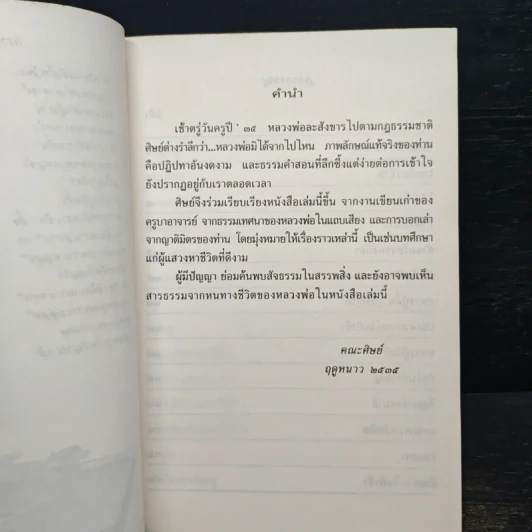 คำนำ
เช้าตรู่วันครูปี ' ๓๕ หลวงพ่อละสังขารไปตามกฎธรรมชาติ
ศิษย์ต่างรำลึกว่า...หลวงพ่อมิได้จากไปไหน ภาพลักษณ์แท้จริงของท่าน
คือปฏิปทาอันงดงาม และธรรมคำสอนที่ลึกซึ้งแต่ง่ายต่อการเข้าใจ
ยังปรากฏอยู่กับเราตลอดเวลา
ศิษย์จึงร่วมเรียบเรียงหนังสือเล่มนี้ขึ้น จากงานเขียนเก่าของ
ครูบาอาจารย์ จากธรรมเทศนาของหลวงพ่อในแถบเสียง และการบอกเล่า
จากญาติมิตรของท่าน โดยมุ่งหมายให้เรื่องราวเหล่านี้ เป็นเช่นบทศึกษา
แก่ผู้แสวงหาชีวิตที่ดีงาม
ผู้มีปัญญา ย่อมค้นพบสัจธรรมในสรรพสิ่ง และยังอาจพบเห็น
สารธรรมจากหนทางชีวิตของหลวงพ่อในหนังสือเล่มนี้
คณะศิษย์
ฤดูหนาว ๒๕๓๕